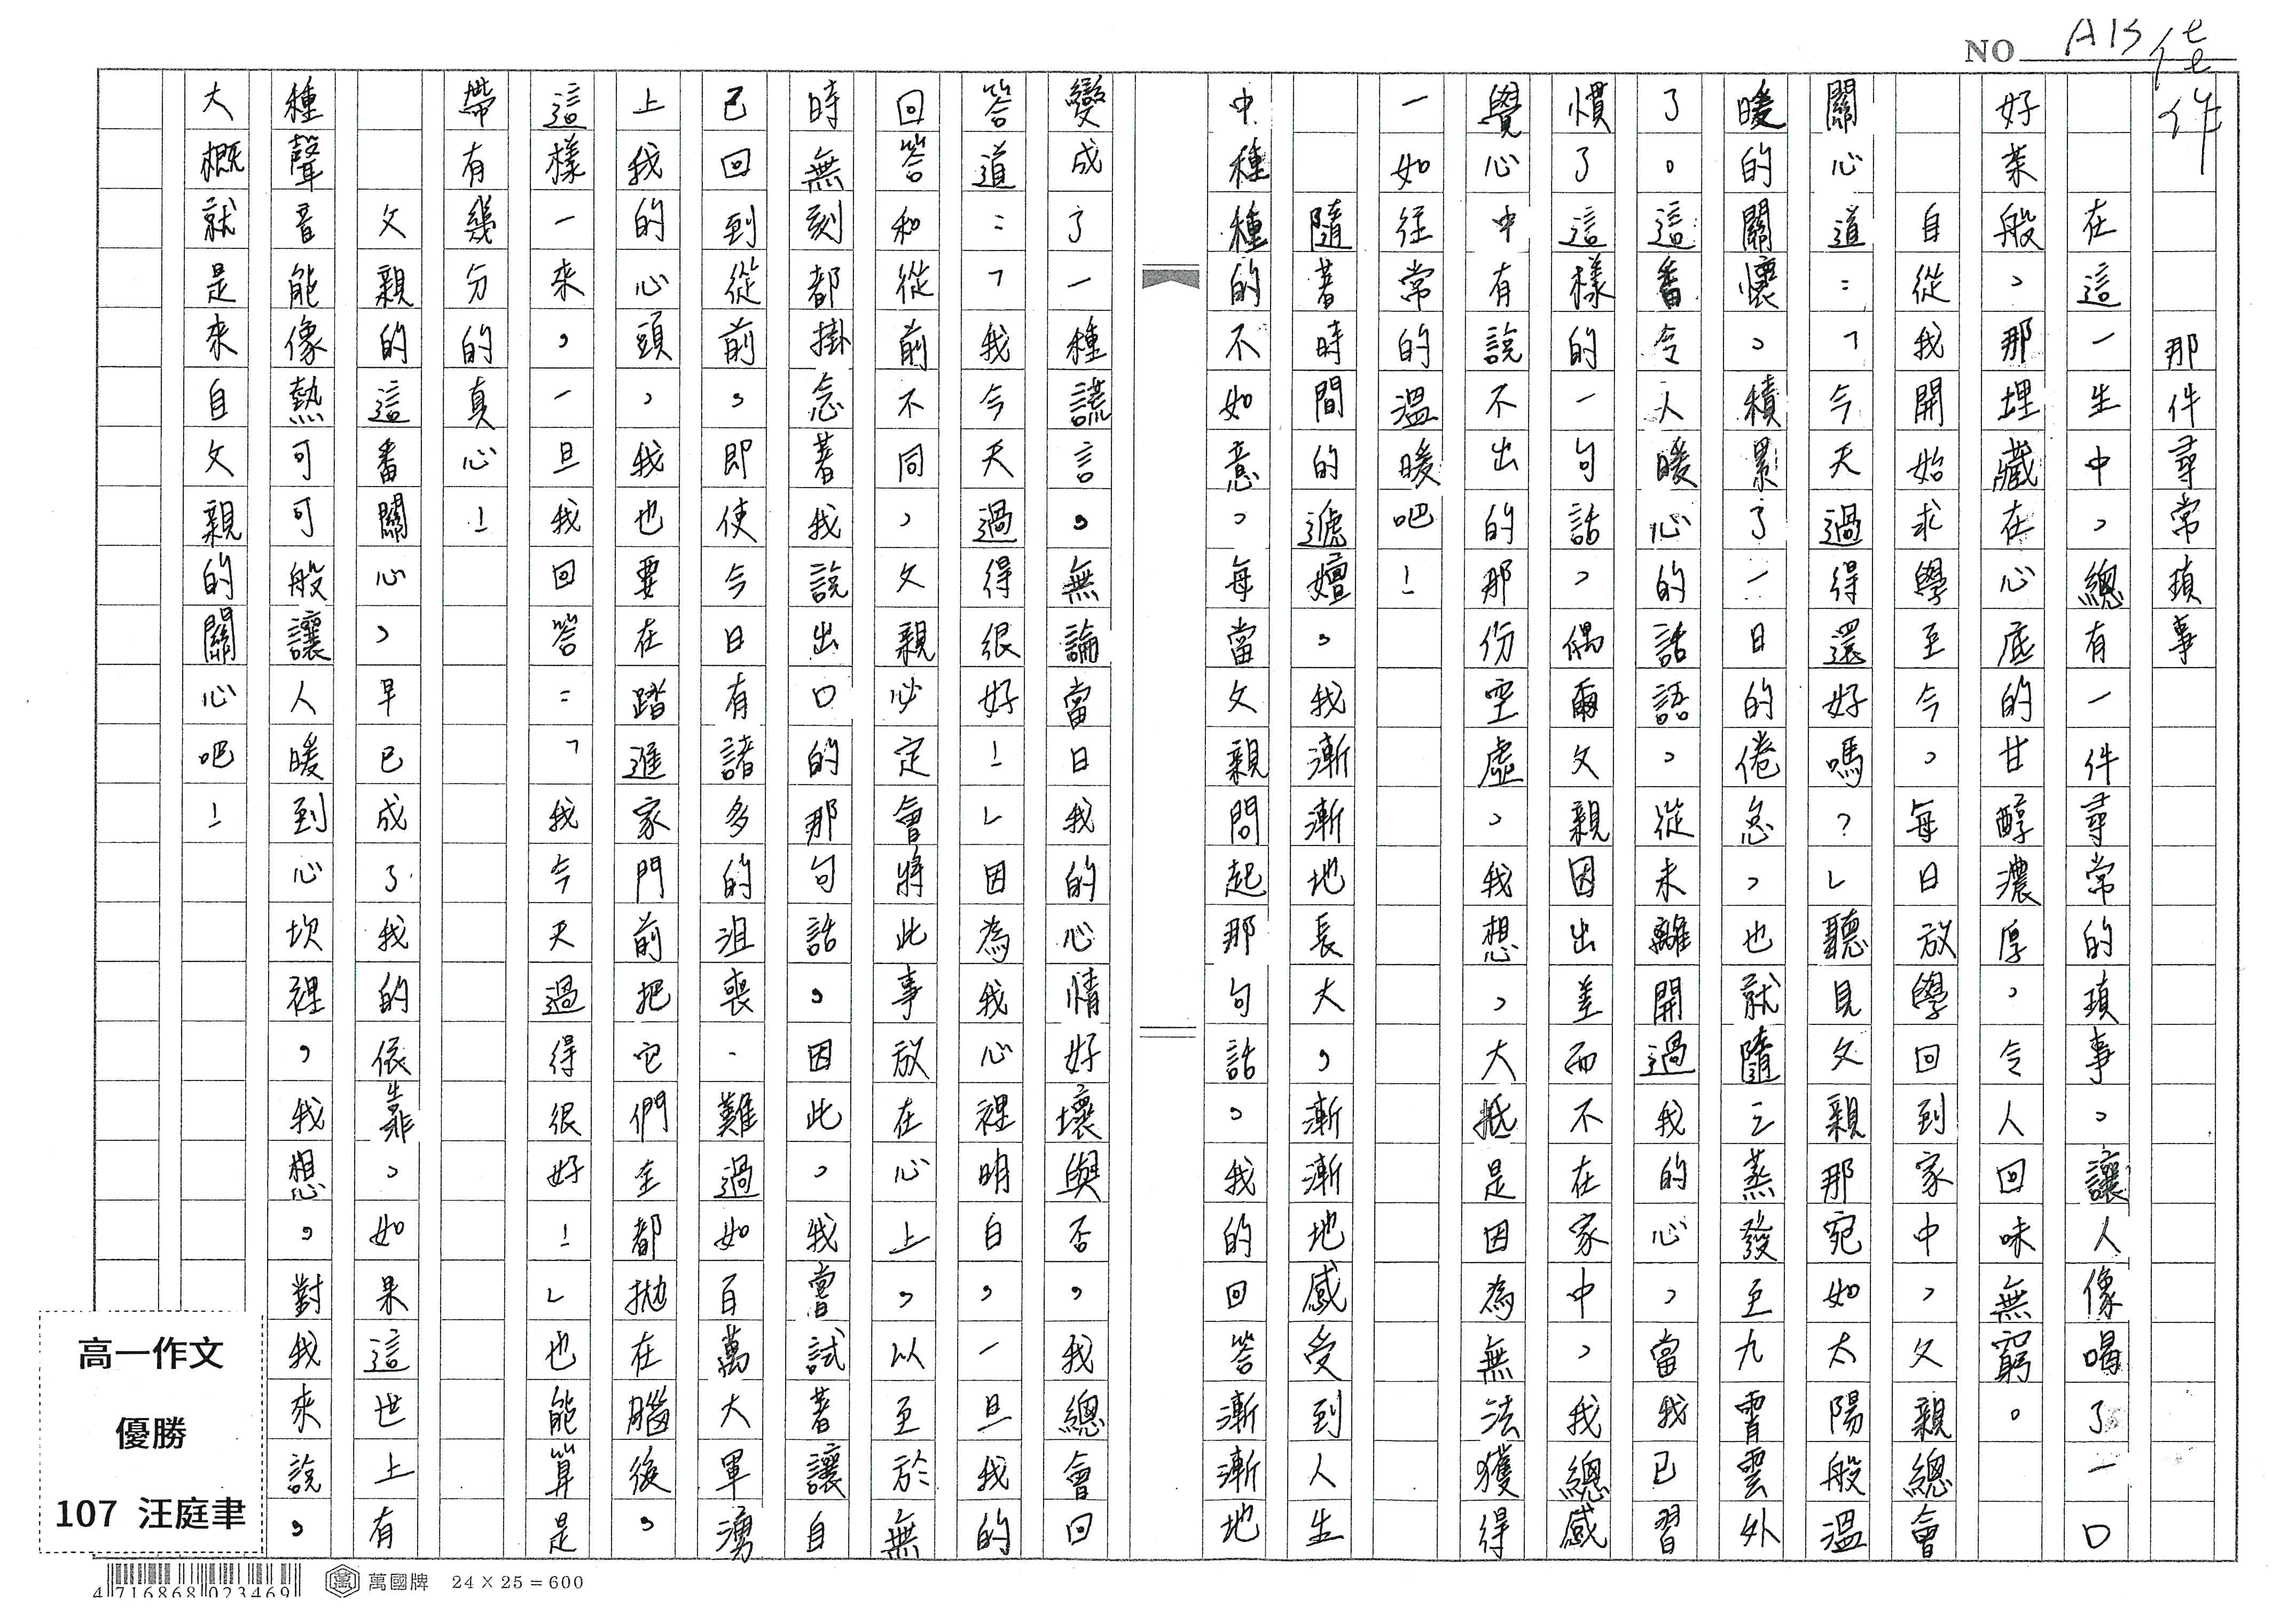 NO A13
佳
佳
作
那件尋常瑣事
在這一生中，總有一件尋常的瑣事，讓人像喝了一口
好茶般，那埋藏在心底的甘醇濃厚，令人回味無窮。
自從我開始求學至今，每日放學回到家中，父親總會
關心道：「今天過得還好嗎？」聽見父親那宛如太陽般溫
暖的關懷，積累了一日的倦怠，也就隨之蒸發至九霄雲外
了。這番令人暖心的話語，從未離開過我的心，當我已習
慣了這樣的一句話，偶爾父親因出差而不在家中，我總感
覺心中有說不出的那份空虛，我想，大抵是因為無法獲得
一如往常的溫暖吧！
隨著時間的遞嬗，我漸漸地長大，漸漸地感受到人生
中種種的不如意，每當父親問起那句話，我的回答漸漸地
變成了一種謊言。無論當日我的心情好壞與否，我總會回
答道：「我今天過得很好！」因為我心裡明白，一旦我的
回答和從前不同，父親必定會將此事放在心上，以至於無
時無刻都掛念著我說出口的那句話。因此，我嘗試著讓自
己回到從前，即使今日有諸多的沮喪、難過如百萬大軍湧
上我的心頭，我也要在踏進家門前把它們全都拋在腦後，
這樣一來，一旦我回答：「我今天過得很好！」也能算是
帶有幾分的真心！
父親的這番關心，早已成了我的依靠，如果這世上有
種聲音能像熱可可般讓人暖到心坎裡，我想，對我來說，
大概就是來自父親的關心吧！
高一作文
優勝
107 汪庭聿
4716868023469
萬國牌 24×25=600